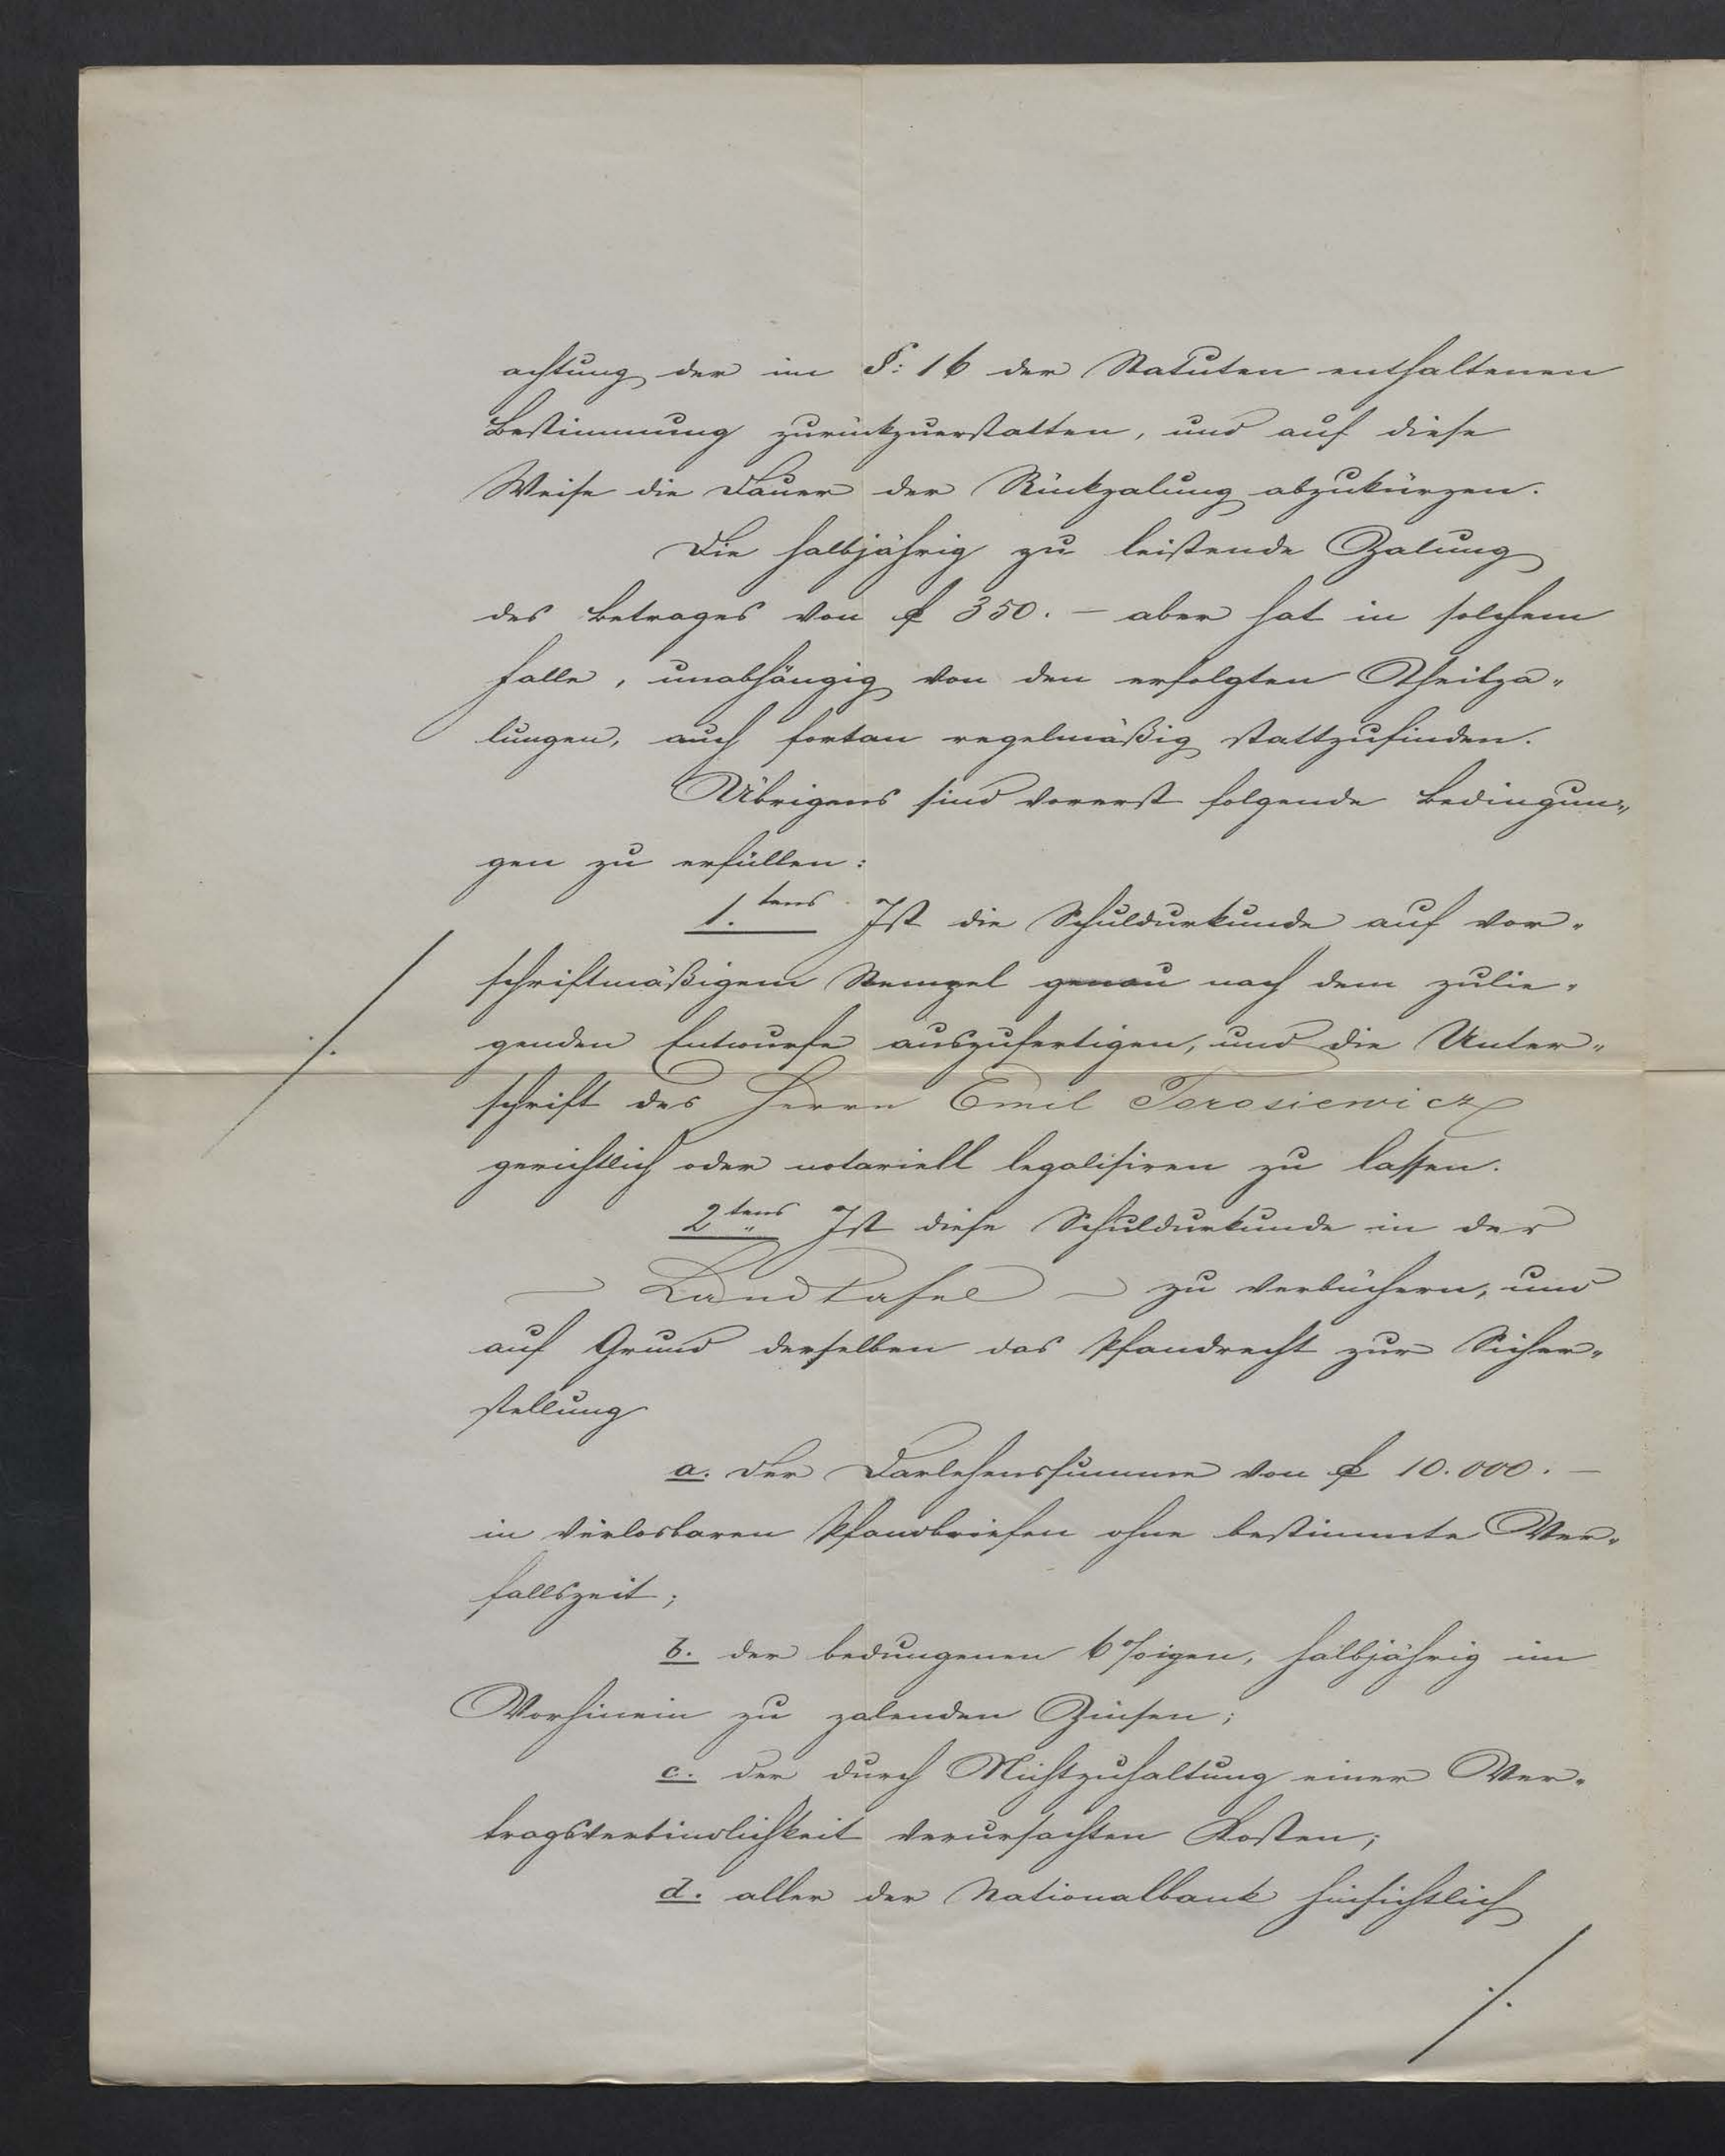 achtung der im §: 16 der Statuten enthaltenen
Bestimmung zurückzuerstatten, und auf diese
Weise die Dauer der Rückzalung abzukürzen.
Die halbjährig zu leistende Zalung
des Betrages von f 350. — aber hat in solchem
Falle, unabhängig von den erfolgten Theilza„
lungen, auch fortan regelmäßig stattzufinden.
Übrigens sind vorerst folgende Bedingun„
gen zu erfüllen:
1. tens Ist die Schuldurkunde auf vor„
schriftmäßigem Stempel genau nach dem zulie„
genden Entwurfe auszufertigen, und die Unter„
schrift des Herrn Emil Torosiewicz
gerichtlich oder notariell legalisiren zu lassen.
2 tens Ist diese Schuldurkunde in der
— Landtafel — zu verbüchern, und
auf Grund derselben das Pfandrecht zur Sicher„
stellung
a. der Darlehenssumme von f 10.000. —
in verlosbaren Pfandbriefen ohne bestimmte Ver„
fallszeit;
b. der bedungenen 6%igen, halbjährig im
Vorhinein zu zalenden Zinsen;
c. der durch Nichtzuhaltung einer Ver„
tragsverbindlichkeit verursachten Kosten;
d. aller der Nationalbank hinsichtlich
./.
./.